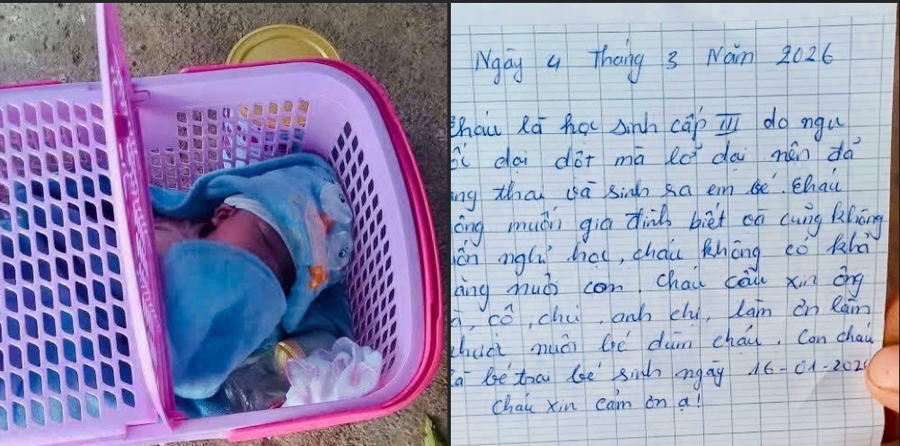 Ngày 4 Tháng 3 Năm 2026
cháu là học sinh cấp III do ngu
dại dột mà lỡ dại nên đã
ng thai và sinh ra em bé. cháu
ông muốn gia đình biết và cũng không
ốn nghỉ học, cháu không có khả
ăng nuôi con. cháu cầu xin ông
à, cô, chú, anh chị, làm ơn làm
phước nuôi bé dùm cháu. Con cháu
là bé trai bé sinh ngày 16-01-202
cháu xin cảm ơn ạ!